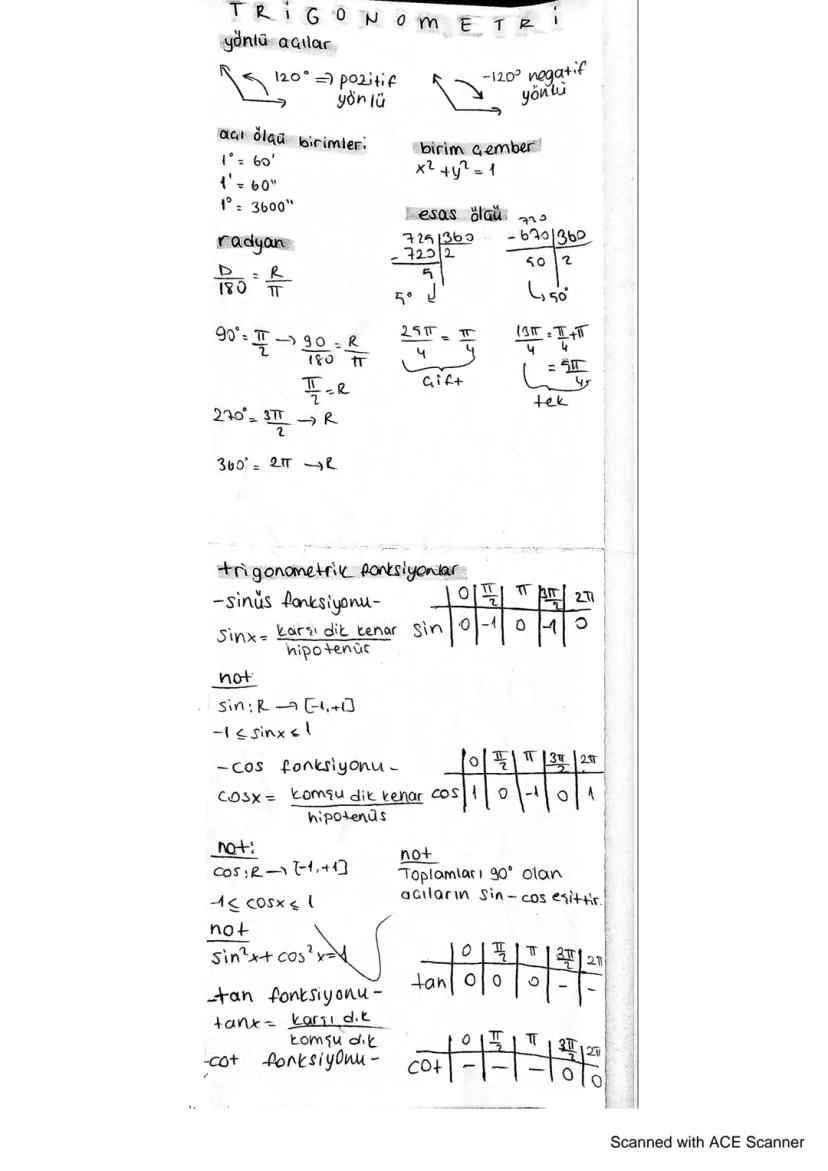 TRİGONOMETRİ
yönlü açılar
120° => pozitif yönlü
-120° negatif yönlü
açı ölçü birimleri
1° = 60'
1' = 60"
1° = 3600"
birim çember
x² + y² = 1
esas ölçü
725 | 360
- 720 | 2
5
5°
720
- 670 | 360
50 | 2
↳ 50°
radyan
D/180 = R/π
90° = π/2 → 90/180 = R/π
π/2 = R
270° = 3π/2 → R
360° = 2π → R
25π/4 = π/4
çift
13π/4 = π/4 + π
= 5π/4
tek
trigonometrik fonksiyonlar
-sinüs fonksiyonu-
sinx = karşı dik kenar / hipotenüs
0 | π/2 | π | 3π/2 | 2π
sin | 0 | -1 | 0 | -1 | 0
not
sin: R → [-1,+1]
-1 ≤ sinx ≤ 1
-cos fonksiyonu-
cosx = komşu dik kenar / hipotenüs
0 | π/2 | π | 3π/2 | 2π
cos | 1 | 0 | -1 | 0 | 1
not:
cos: R → [-1,+1]
-1 ≤ cosx ≤ 1
not
Toplamları 90° olan
açıların sin-cos eşittir.
not
sin²x + cos²x = 1
-tan fonksiyonu-
tanx = karşı dik / komşu dik
0 | π/2 | π | 3π/2 | 2π
tan | 0 | 0 | 0 | - | -
-cot fonksiyonu-
0 | π/2 | π | 3π/2 | 2π
cot | - | - | - | 0 | 0
Scanned with ACE Scanner